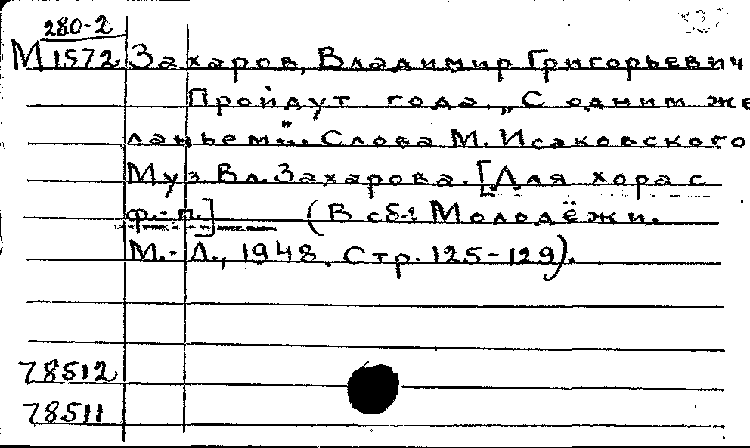 280-2
М 1572 Захаров, Владимир Григорьевич
Пройдут года. „С одним же
ланьем..." Слова М. Исаковского
Муз. Вл. Захарова. [Для хора с
ф.-п.] (В сб-: Молодёжи.
М.-Л., 1948. Стр. 125-129).
78512
78511